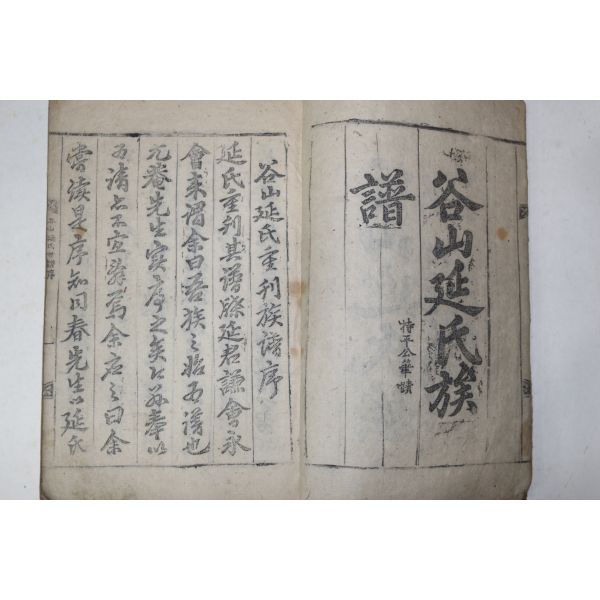 谷山延氏族
譜
持平公筆蹟
谷山延氏重刊族譜序
延氏重刊其譜滕延君謙會永
會來謂余曰吾族之始有譜也
尤菴先生實序之矣公孫奉以
而請上不宜辭焉余應之曰余
嘗讀是序知同春先生以延氏